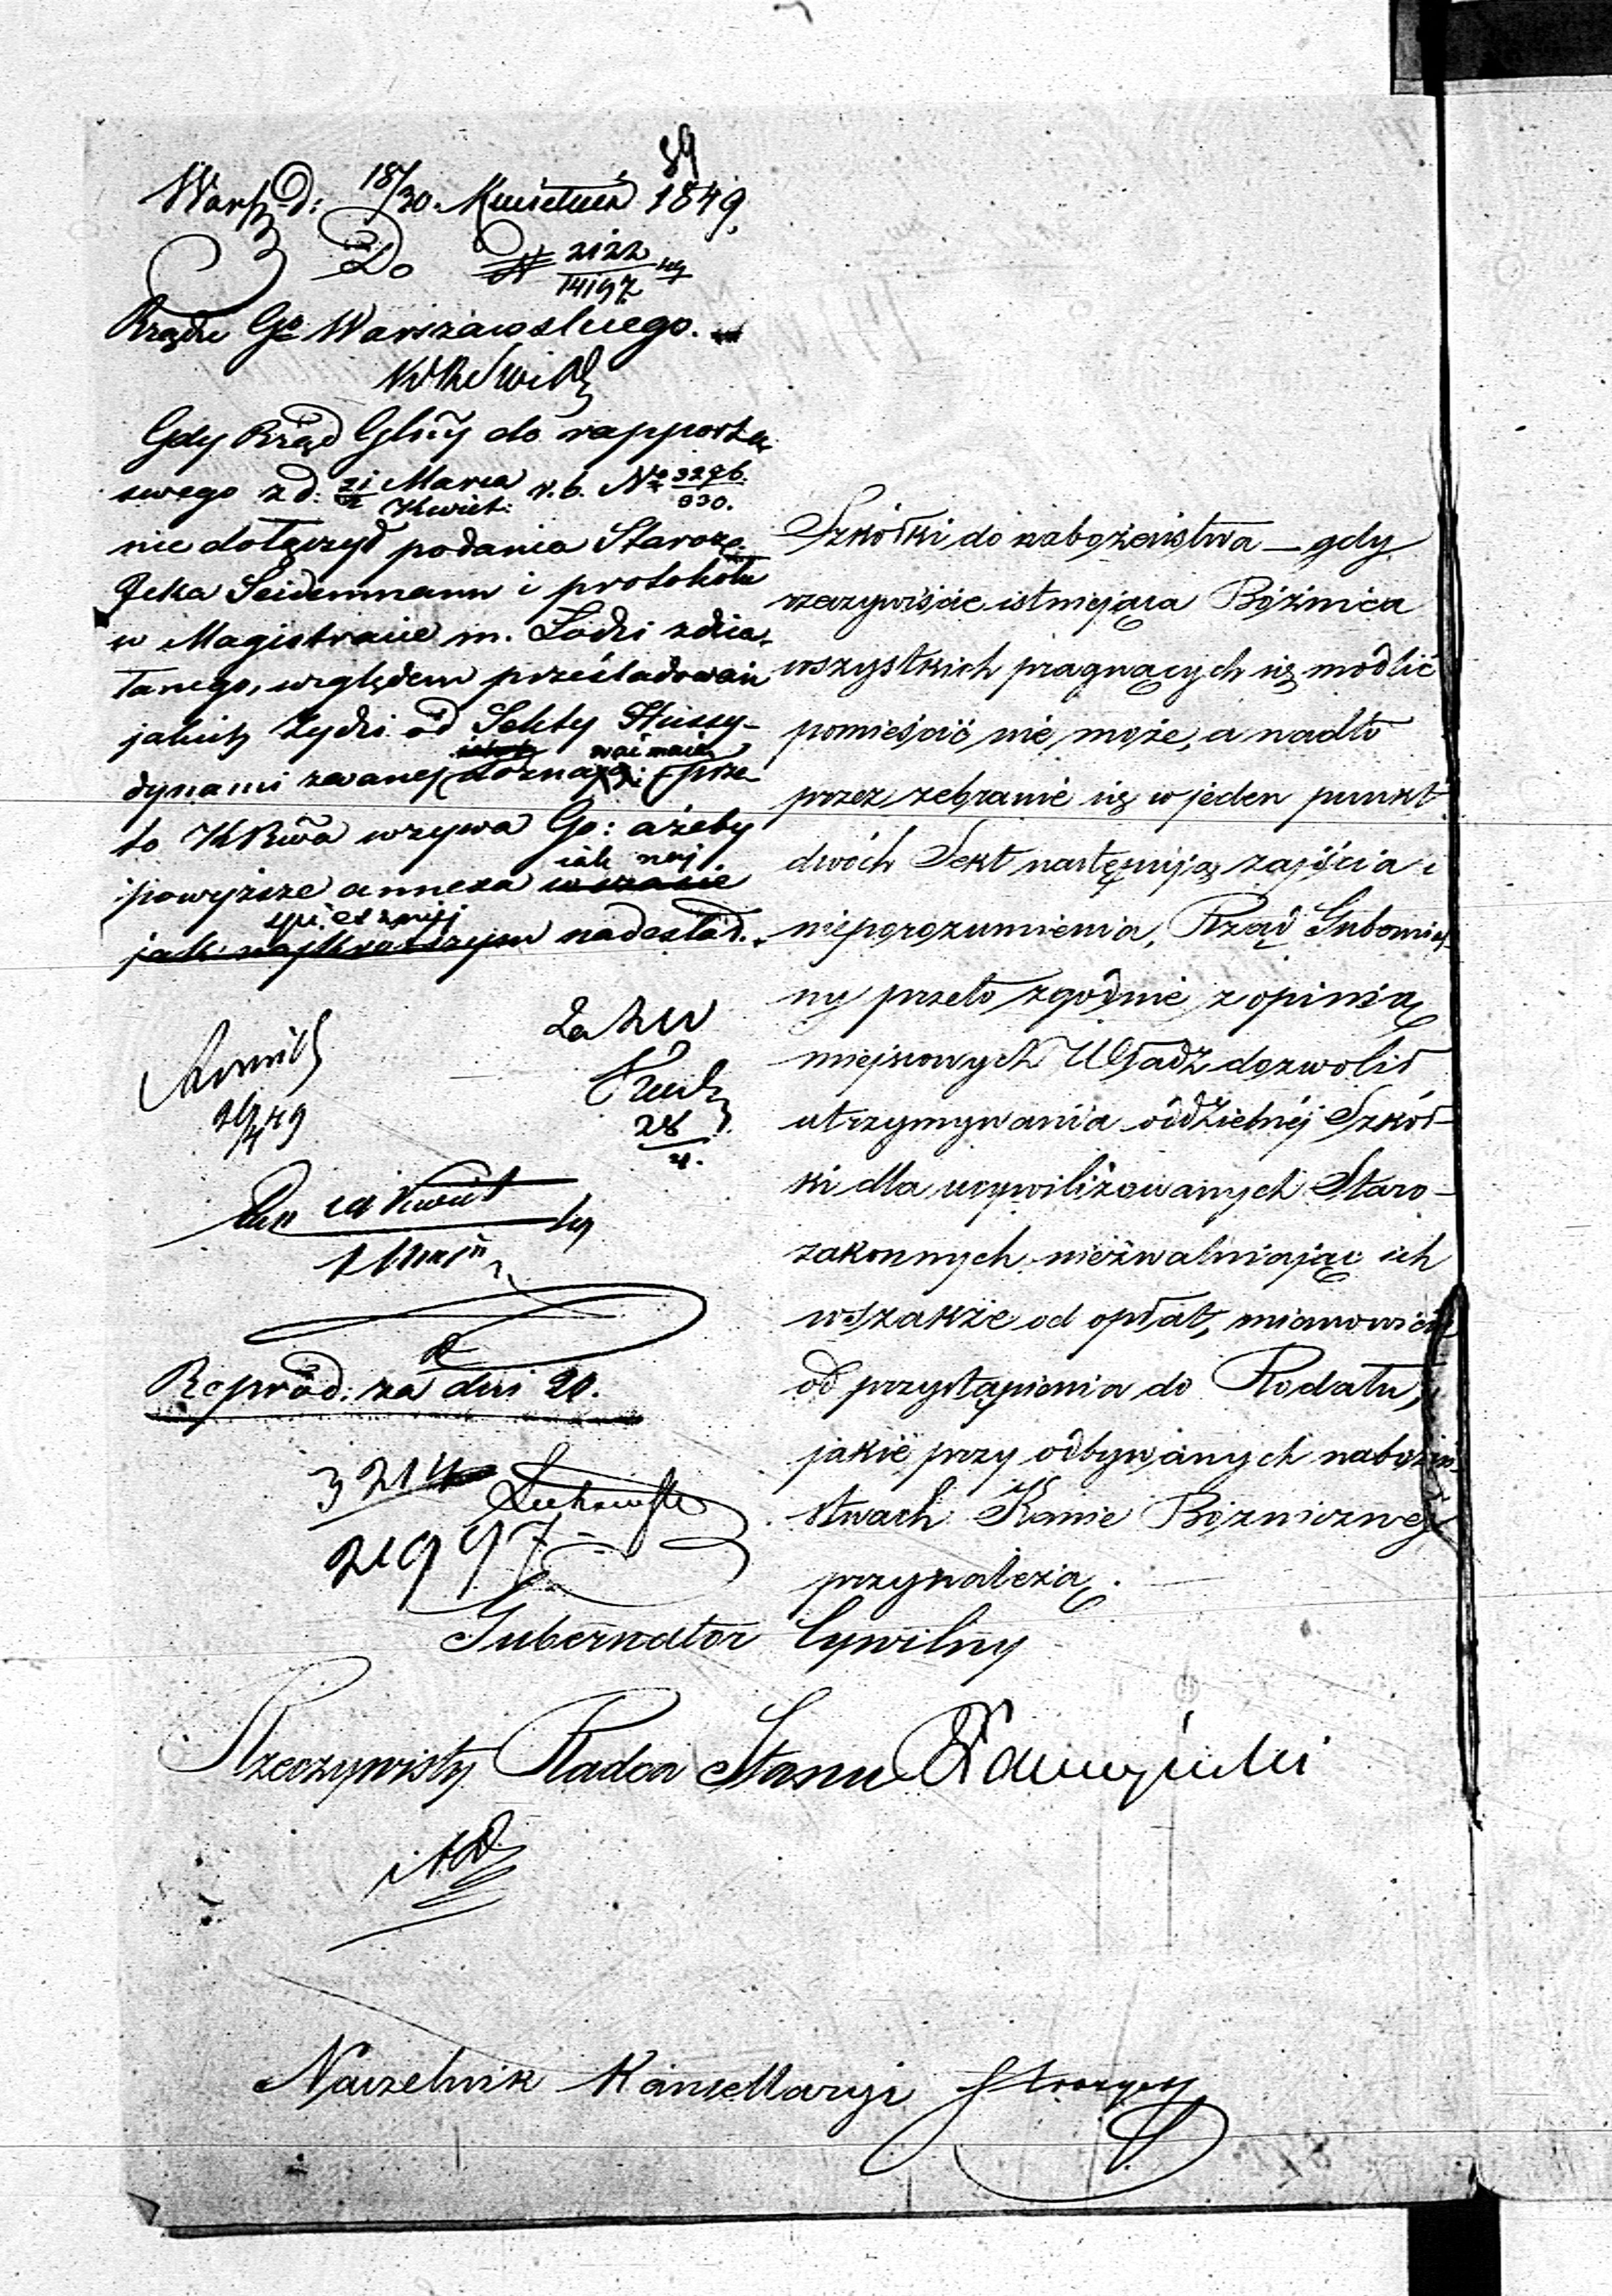 89
Warsz. d: 18/30 Kwietnia 1849.
Do N 2122/14197 49
Rządu Go Warszawskiego.
Gdy Rząd Glny do rapportu
swego z d. 21 Marca/2 Kwiet: r. b. No 3296/930.
nie dołączył podania Staroz.
Icka Seidemmann i protokołu
w Magistracie m. Łodzi zdzia-
łanego, względem prześladowań
jakich Żydzi od Sekty Hussy-
dynami zwanej doznawać maią, prze-
to KRwa wzywa Go: ażeby
powyższe annexa iak naj
spieszniej nadesłał.
29/4 49
28/4.
19 Kwiet
1 Maja 49
Reprod: za dni 20.
3214
21997
Szkółki do nabożeństwa — gdy
rzeczywiście istniejąca Bóżnica
wszystkich pragnących się modlić
pomieścić nie może, a nadto
przez zebranie się w jeden punkt
dwóch Sekt następują zajścia i
nieporozumienia, Rząd Gubernial-
ny przeto zgodnie z opinią
miejscowych Władz dozwolił
utrzymywania oddzielnéj Szkół-
ki dla ucywilizowanych Staro-
zakonnych nieuwalniając ich
wszakże od opłat, mianowicie
od przystąpienia do Rodału,
jakie przy odbywanych nabożeń-
stwach Kassie Bóżniczney
przynależą.
Gubernator Cywilny
Rzeczywisty Radca Stanu
Naczelnik Kancellaryi